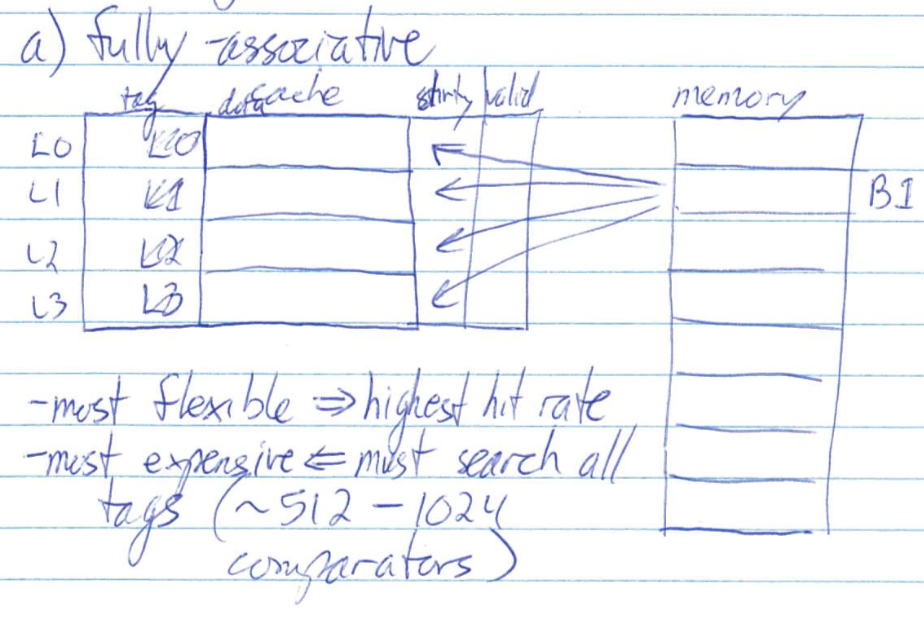 a) fully-associative
tag data cache dirty valid memory
L0 L0
L1 L1 B1
L2 L2
L3 L3
-most flexible ⇒ highest hit rate
-most expensive ⇐ must search all
tags (~512 - 1024
comparators)